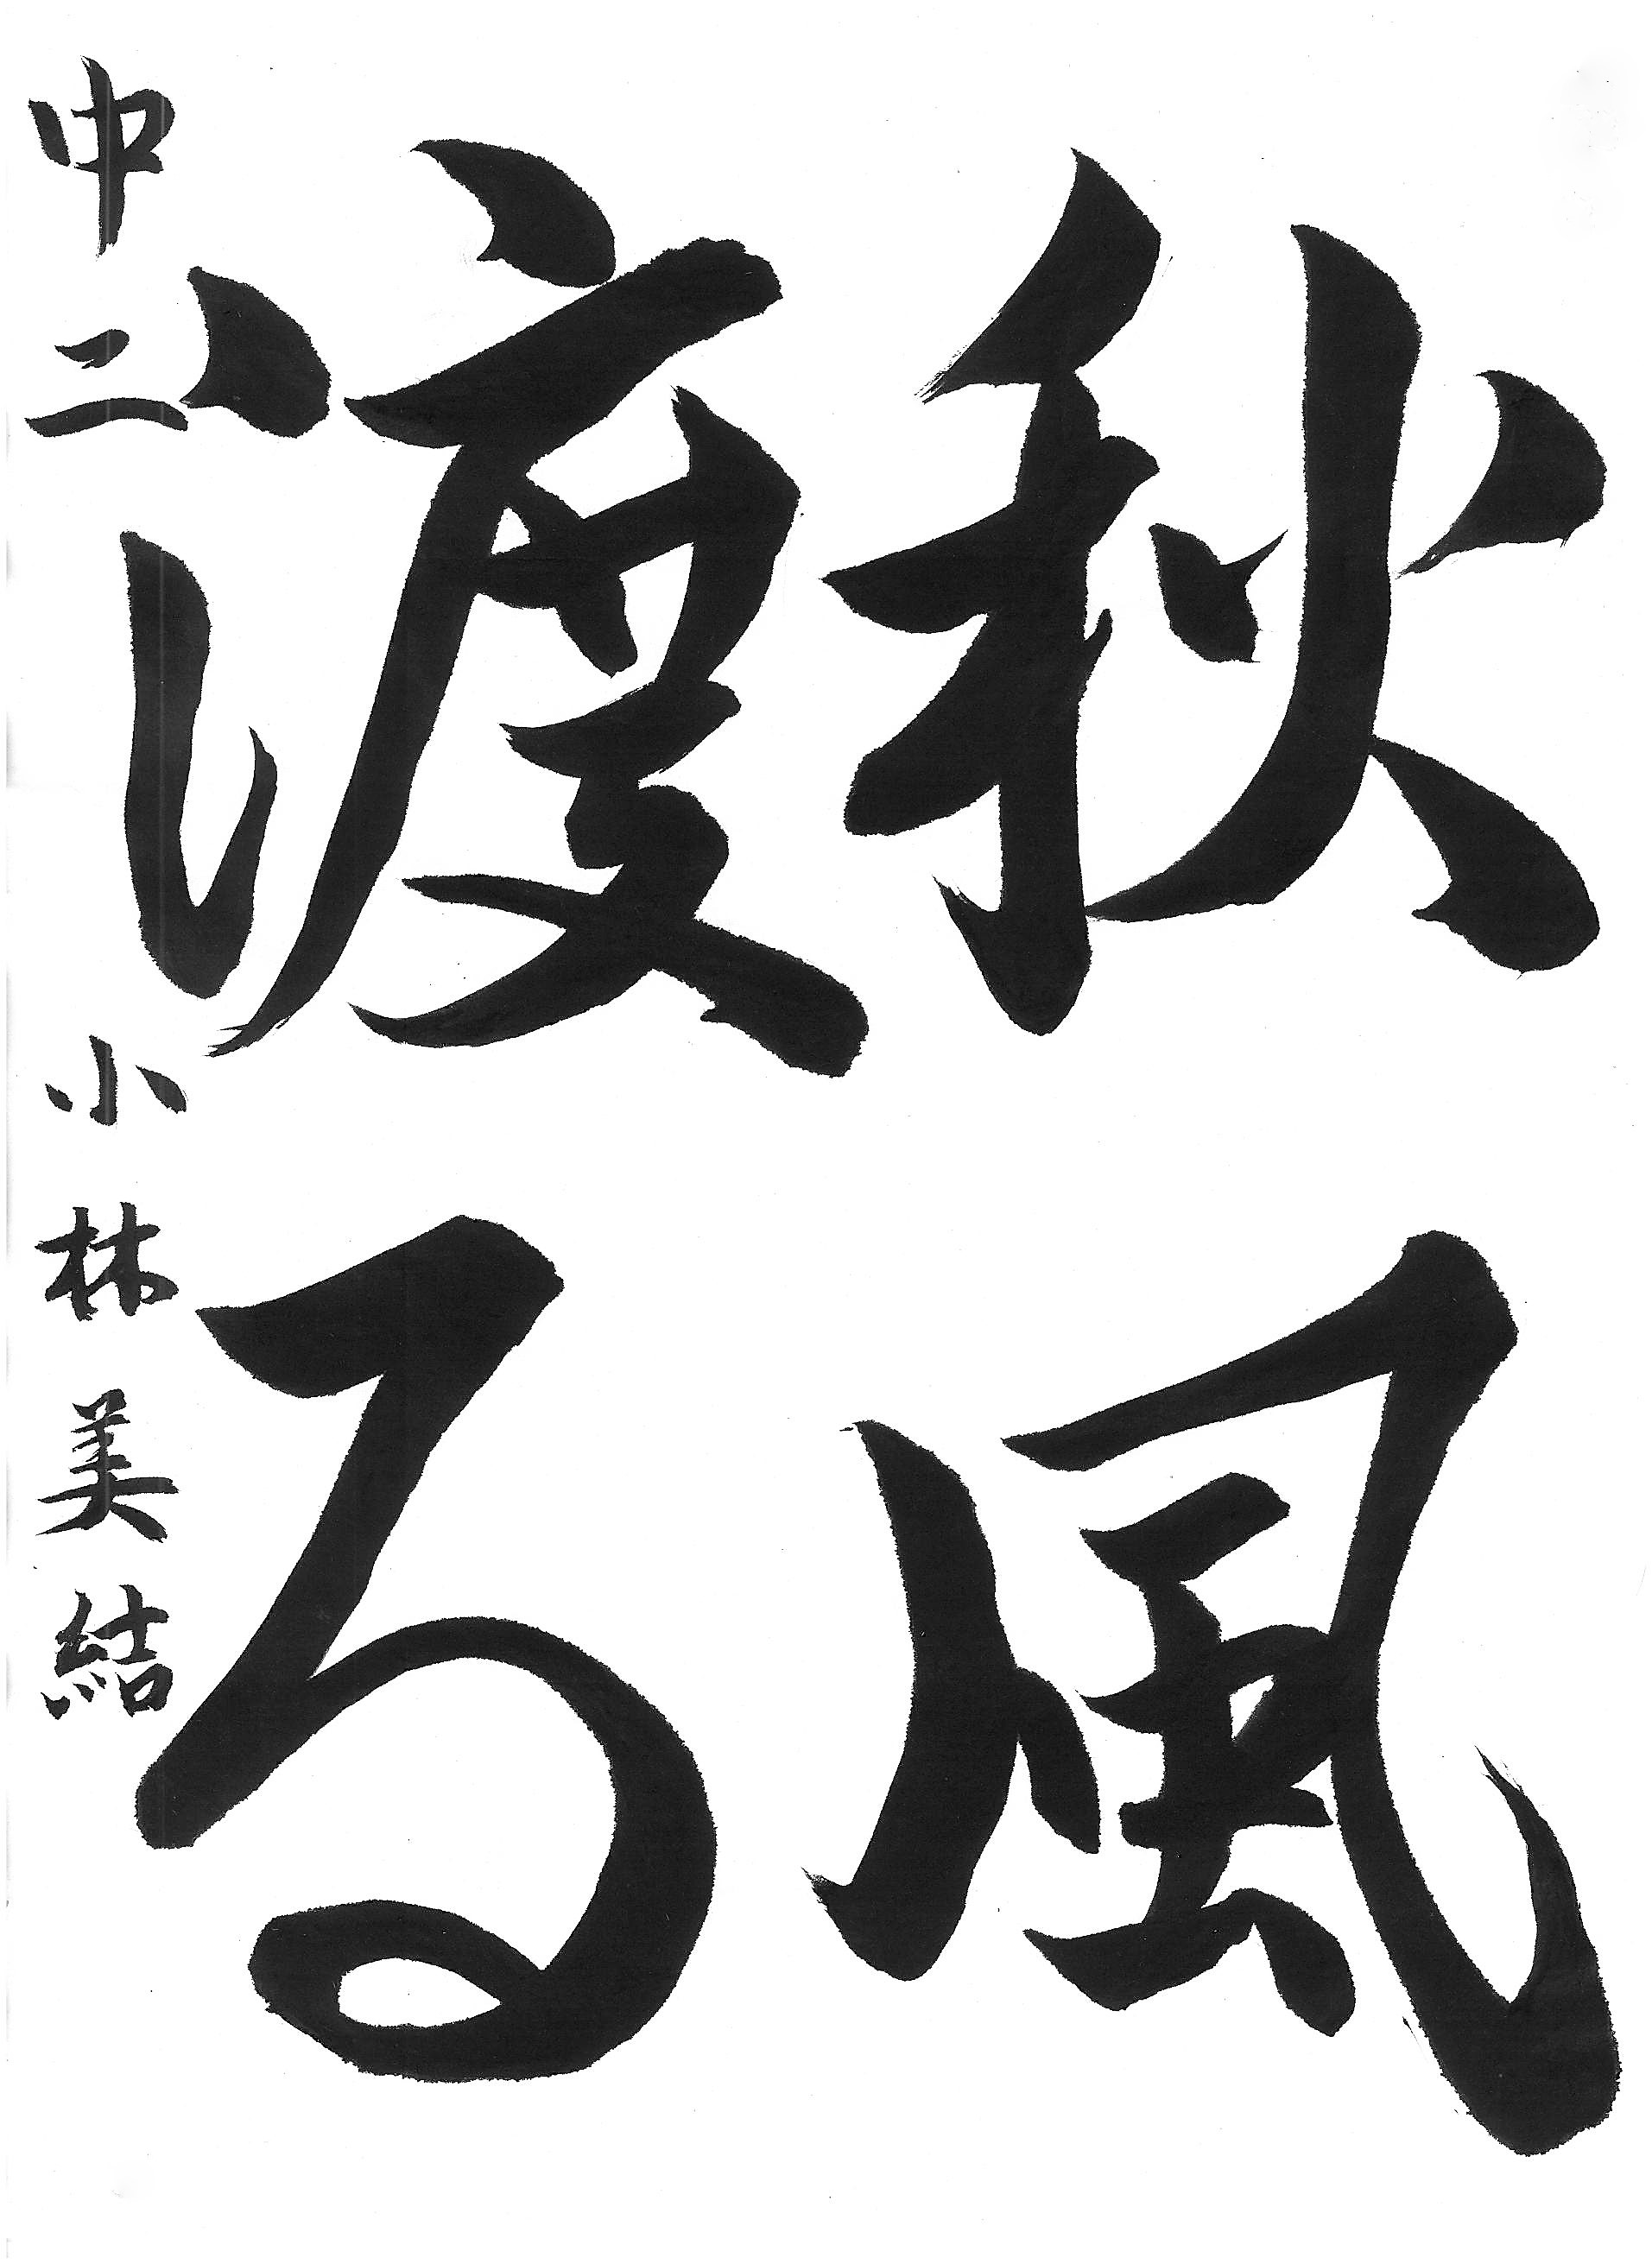 秋風
渡る
中二 小林美結